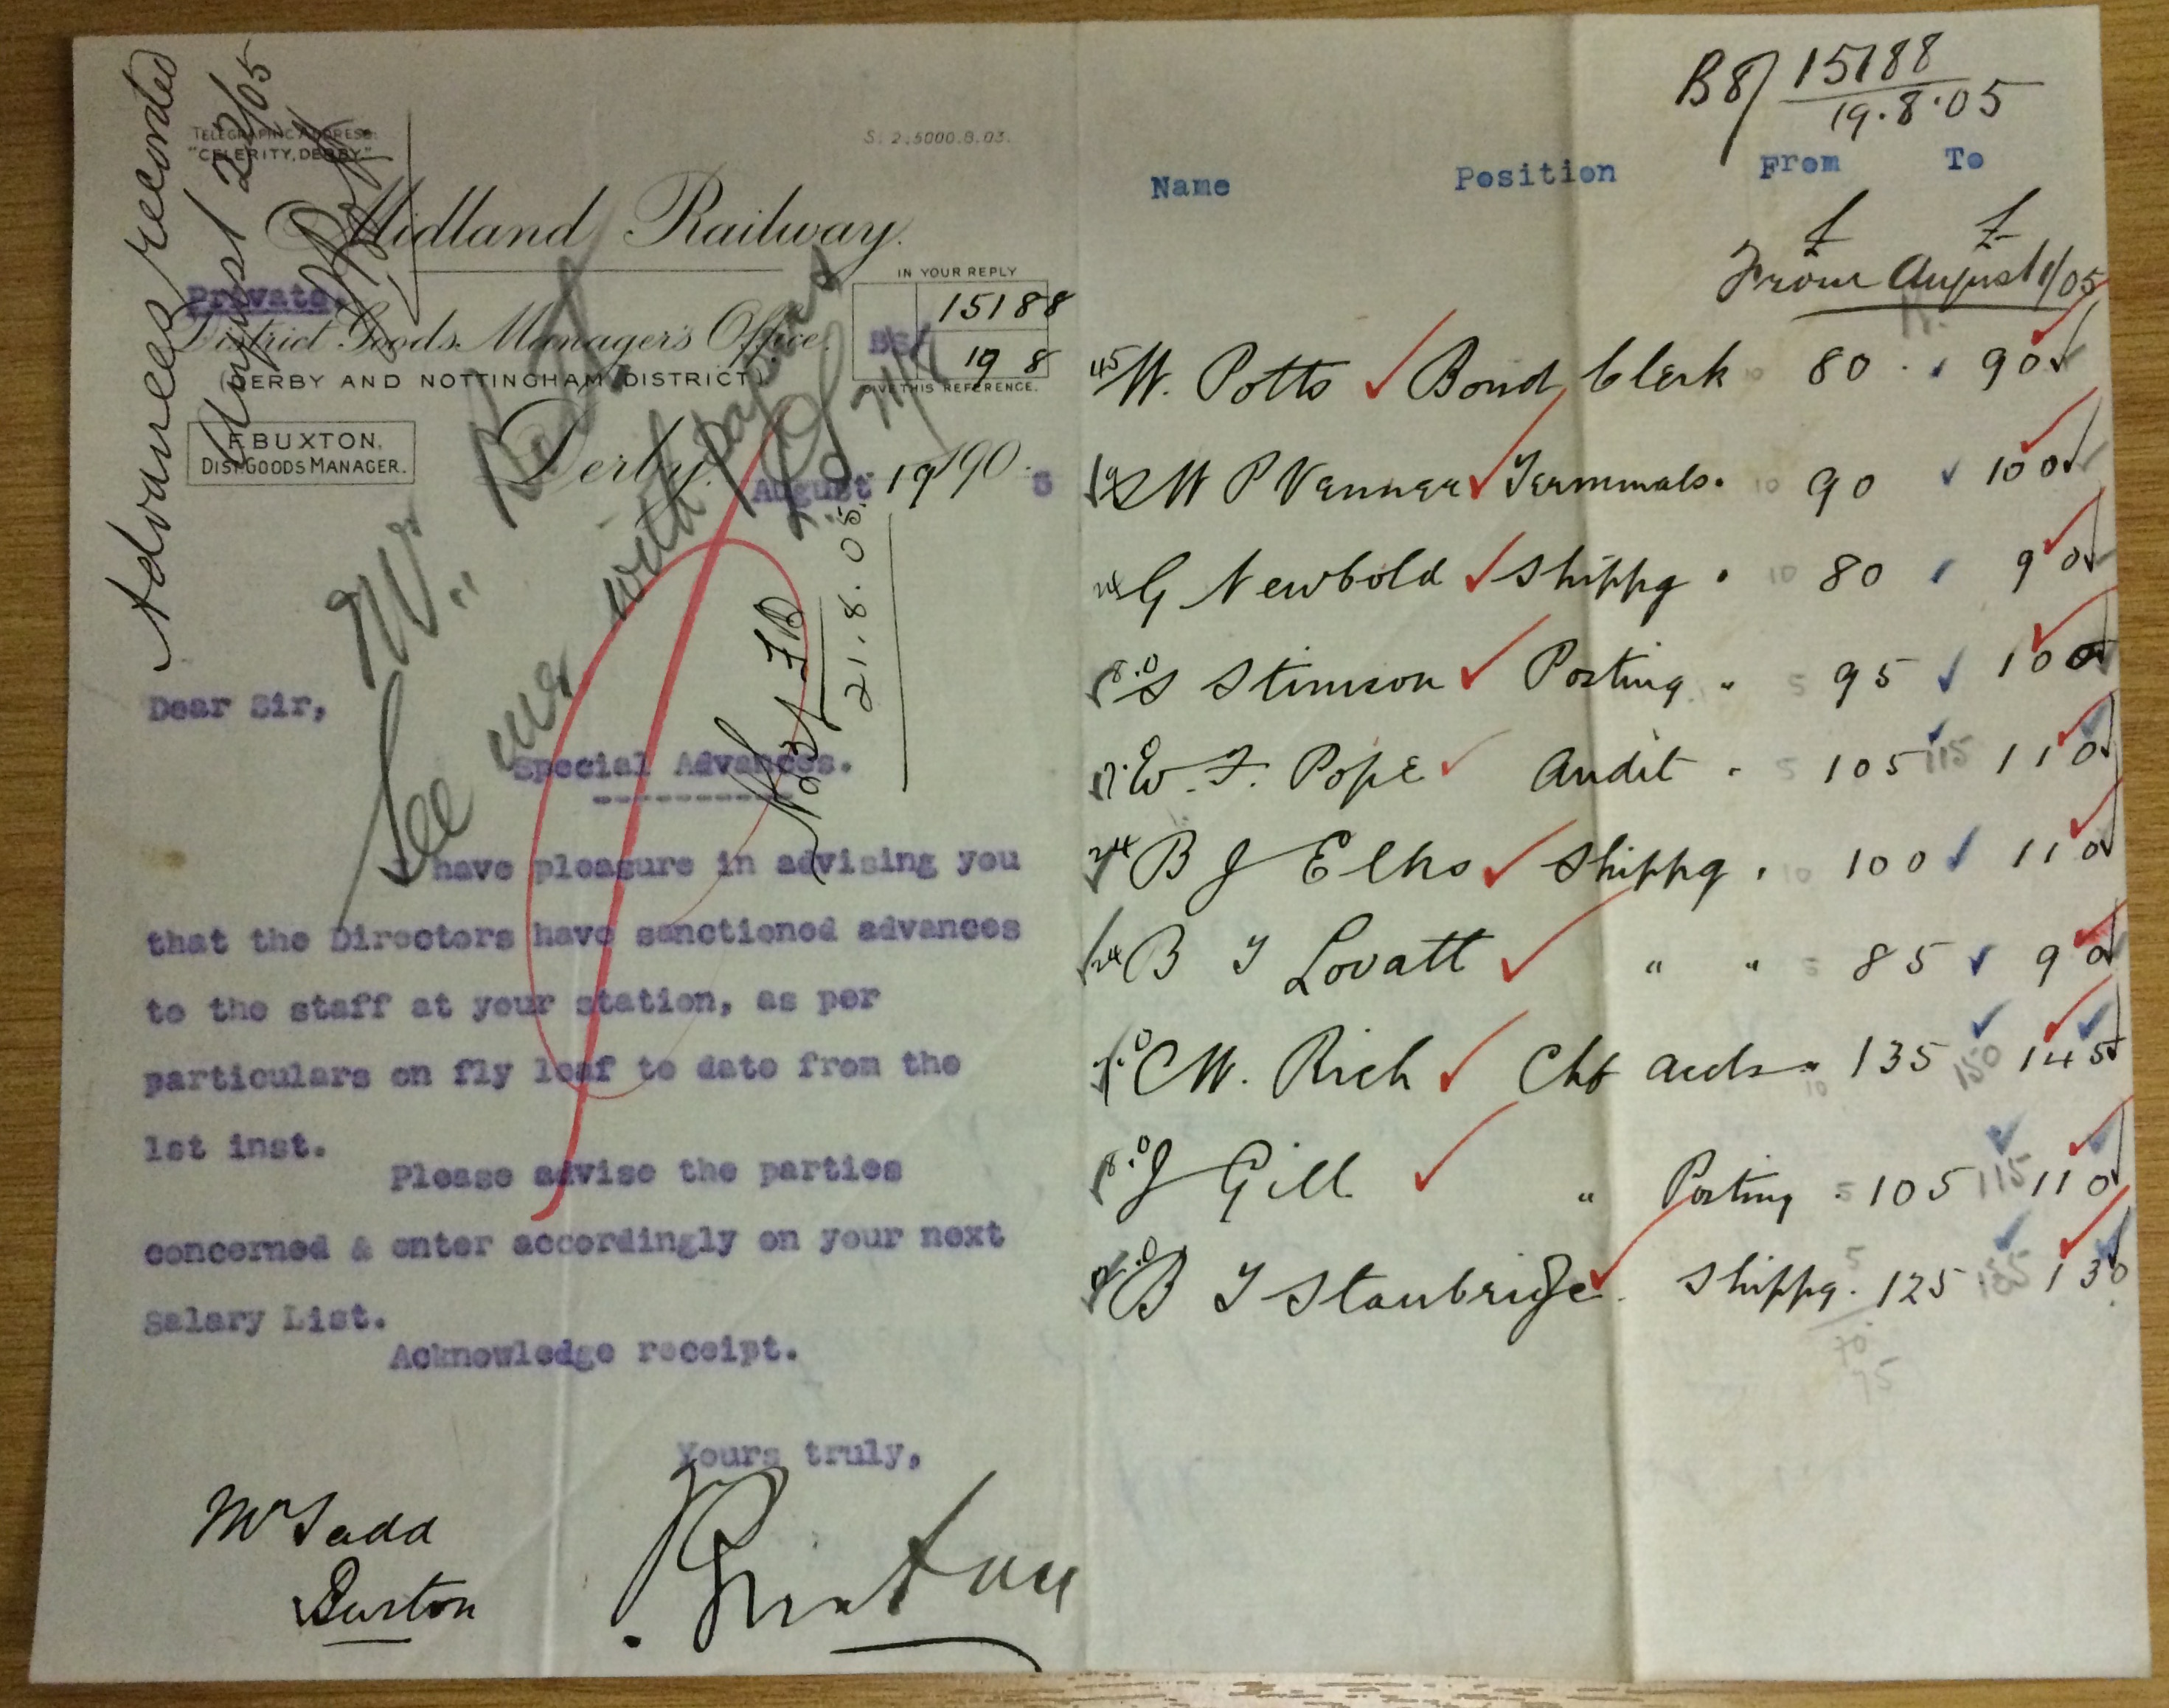 Advances recorded
August 22/05
TELEGRAPHIC ADDRESS:
"CELERITY, DERBY."
S. 2.5000.8.03.
Midland Railway.
Private.
District Goods Manager's Office.
(DERBY AND NOTTINGHAM DISTRICT)
IN YOUR REPLY
15188
B8/
19 8
GIVE THIS REFERENCE.
F. BUXTON,
DIST. GOODS MANAGER.
Derby,
August 19 190 5
See me with papers
21.8.05
Dear Sir,
Special Advances.
I have pleasure in advising you
that the Directors have sanctioned advances
to the staff at your station, as per
particulars on fly leaf to date from the
1st inst.
Please advise the parties
concerned & enter accordingly on your next
Salary List.
Acknowledge receipt.
Yours truly,
Mr Tadd
Burton
B8/ 15188
19.8.05
Name Position From To
£ £
From August 1/05
W. Potts Bond Clerk 10 80 90
W P Venner Terminals. 10 90 100
24 G Newbold Shippg " 10 80 90
S Stimson Posting " 5 95 100
W. F. Pope Audit " 5 105 115 110
24 B J Elks Shippg " 10 100 110
24 B T Lovatt " " 5 85 90
C W. Rich Chf Accts " 10 135 150 145
J Gill " Posting " 5 105 115 110
B T Stanbridge Shippg. 5 125 130
70
75